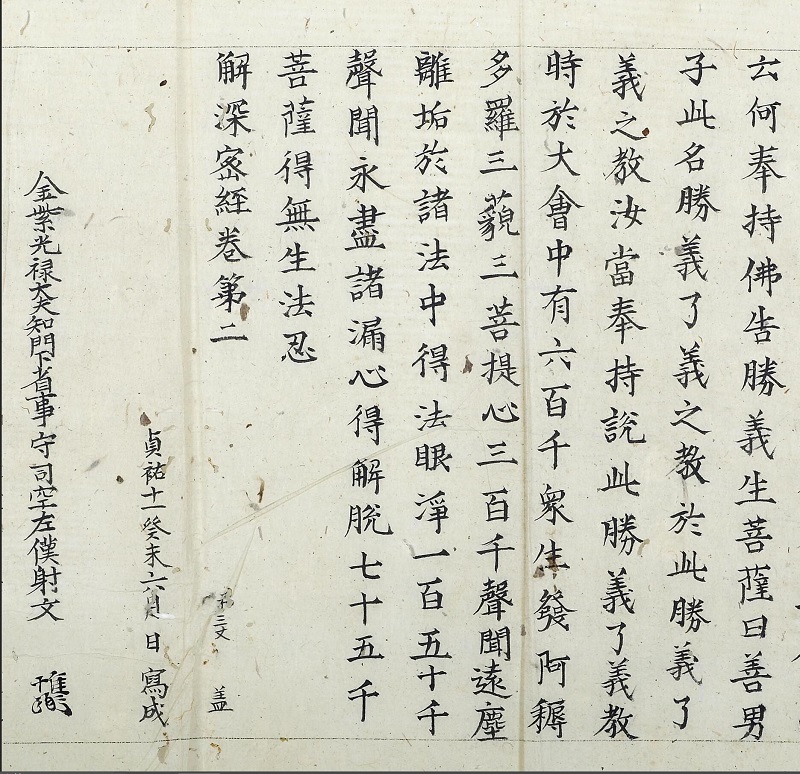 云何奉持佛告勝義生菩薩曰善男
子此名勝義了義之教於此勝義了
義之教汝當奉持說此勝義了義教
時於大會中有六百千衆生發阿耨
多羅三藐三菩提心三百千聲聞遠塵
離垢於諸法中得法眼淨一百五十千
聲聞永盡諸漏心得解脫七十五千
菩薩得無生法忍
解深密經卷第二
三丈 盖
貞祐十一癸未六月 日 寫成
金紫光祿大夫知門下省事守司空左僕射文